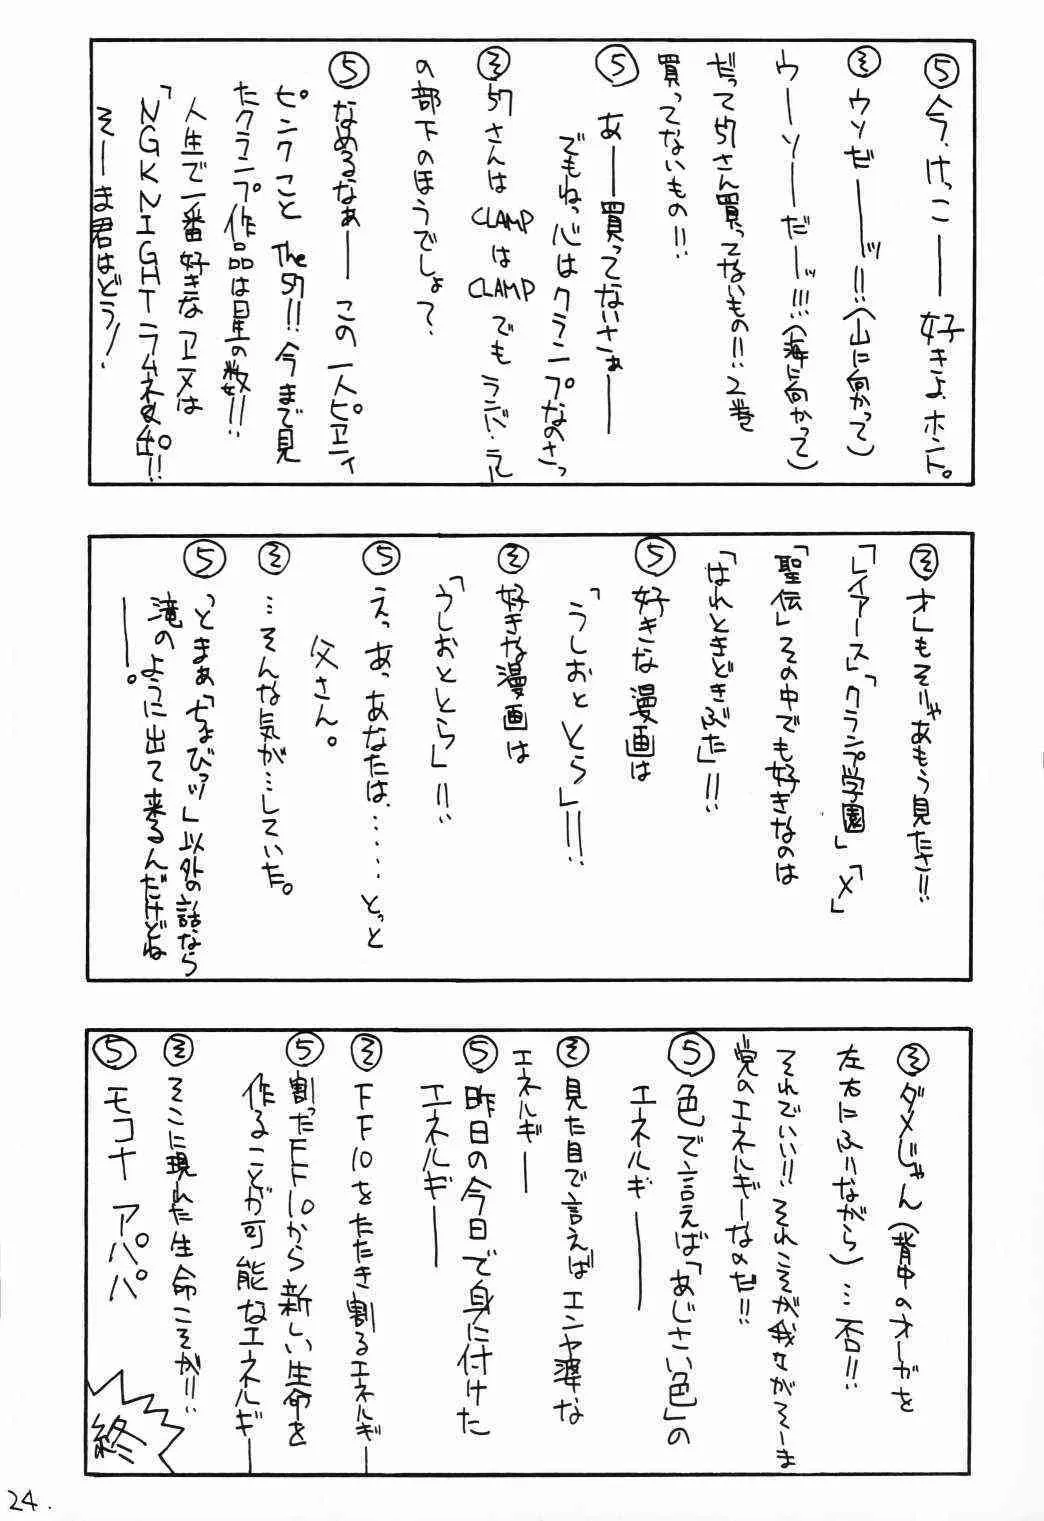 ⑤今、けっこーー好きよ、ホント。
㋞ウソぜーーッ!!(山に向かって)
ウーソーーだーッ!!!(海に向かって)
だって57さん買ってないもの!!2巻
買ってないもの!!
⑤あーー買ってないさぁーー
でもねっ心はクランプなのさっ
㋞57さんはCLAMPはCLAMPでもランバ・ラル
の部下のほうでしょ?
⑤なめるなぁーーこの一人ピエニィ
ピンクこと The57!!今まで見
たクランプ作品は星の数!!
人生で一番好きなアニメは
「NGKNIGHTラムネ&40!!
そーま君はどう!
㋞オレもそりゃあもう見たさ!!
「レイアース」「クランプ学園」「X」
「聖伝」その中でも好きなのは
「はれときどきぶた」!!
⑤好きな漫画は
「うしおととら」!!!
㋞好きな漫画は
「うしおととら」!!
⑤えっあっあなたは、‥‥とっと
父さん。
㋞…そんな気が…していた。
⑤っとまぁ「ちょびっツ」以外の話なら
滝のように出て来るんだけどね
ーー。
㋞ダメじゃん(背中のオーガを
左右にふりながら)…否!!
それでいい!!それこそが我ながそーま
党のエネルギーなのだ!!
⑤色で言えば「あじさい色」の
エネルギーーー
㋞見た目で言えばエンヤ婆な
エネルギー
⑤昨日の今日で身に付けた
エネルギーー
㋞FF10をたたき割るエネルギー
⑤割ったFF10から新しい生命を
作ることが可能なエネルギー
㋞そこに現れた生命こそが!!
⑤モコナ アパパ
終
24.